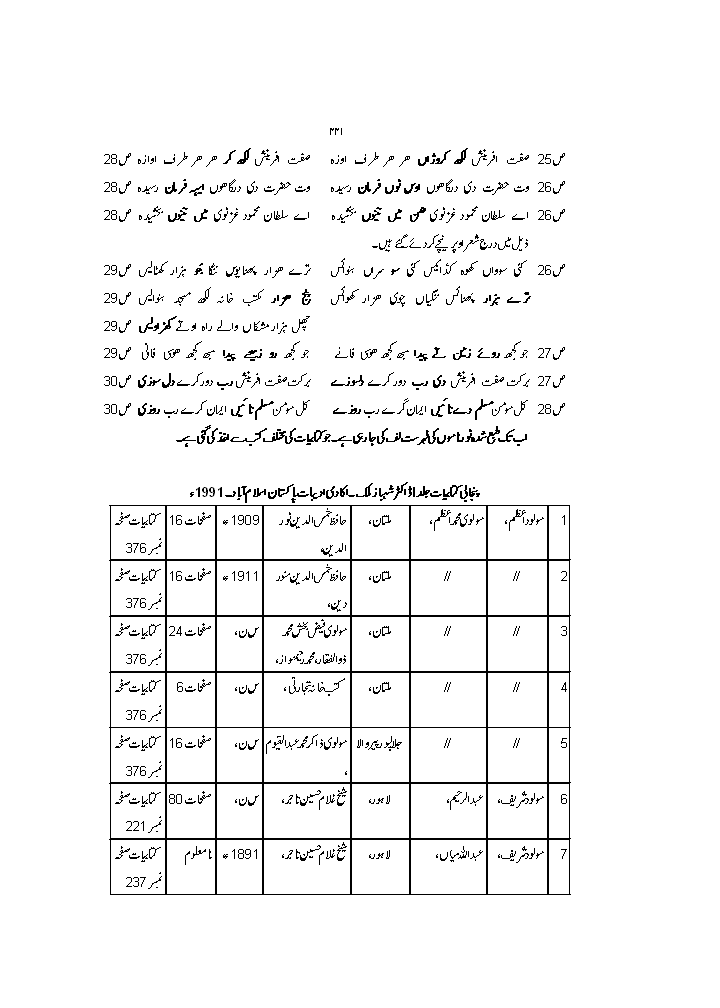 ۳۳۱
ص25 صفت افرینش لکھ کروڑاں ھر ھر طرف اوزہ صفت افرینش لکھ کر ھر ھر طرف اوازہ ص28
ص26 وت حضرت دی درگاھوں اوس نوں فرمان رسیدہ وت حضرت دی درگاھوں ایہہ فرمان رسیدہ ص28
ص26 اے سلطان محمود غزنوی ھن میں تینوں بخشیدہ اے سلطان محمود غزنوی میں تینوں بخشیدہ ص28
ذیل میں درج شعر اوپر نیچے کر دئے گئے ہیں۔
ص26 کئی سوواں کھوہ کڈائیس کئی سو سراں بنوائس ترے ھزار پھتایوں تنگا بھو ہزار کھٹالیس ص29
ترے ہزار پھتائس تنگیاں چوی ھزار کھوائس پنج ھزار مکتب خانہ لکھ مسجد بنوایس ص29
چھل ہزار مشکاں والے راہ اوتے کھڑاویس ص29
ص27 جو کجھ روئے زمین تے پیدا سبھ کجھ ھوی فانے جو کجھ رو زمیے پیدا سبھ کجھ ھوی فانی ص29
ص27 برکت صفت افرینش دی رب دور کرے دلسوزے برکت صفت افرینش رب دور کرے دل سوزی ص30
ص28 کل مومن مسلم دے تائیں ایمان کرے رب روزے کل مومن مسلم تائیں ایمان کرے رب روزی ص30
اب تک طبع شدہ نورناموں کی فہرست لف کی جا رہی ہے۔ جو کتابیات کی مختلف کتب سے اخذ کی گئی ہے۔
پنجابی کتابیات جلد I ڈاکٹر شہباز ملک۔ اکادمی ادبیات پاکستان اسلام آباد۔ 1991ء
1 مولود اعظم، مولوی محمد اعظم، ملتان، حافظ شمس الدین نور 1909ء صفحات 16 کتابیات صفحہ
الدین، نمبر 376
2 // // ملتان، حافظ شمس الدین منور 1911ء صفحات 16 کتابیات صفحہ
دین، نمبر 376
3 // // ملتان، مولوی فیض بخش محمد س ن، صفحات 24 کتابیات صفحہ
ذوالفقار، محمد رحیم نواز، نمبر 376
4 // // ملتان، کتب خانہ تجارتی، س ن، صفحات 6 کتابیات صفحہ
نمبر 376
5 // // جلالپور پیروالا مولوی ذاکر محمد عبدالقیوم س ن، صفحات 16 کتابیات صفحہ
، نمبر 376
6 مولود شریف، عبدالرحیم، لاہور، شیخ غلام حسین تاجر، س ن، صفحات 80 کتابیات صفحہ
نمبر 221
7 مولود شریف، عبداللہ میاں، لاہور، شیخ غلام حسین تاجر، 1891ء نامعلوم کتابیات صفحہ
نمبر 237